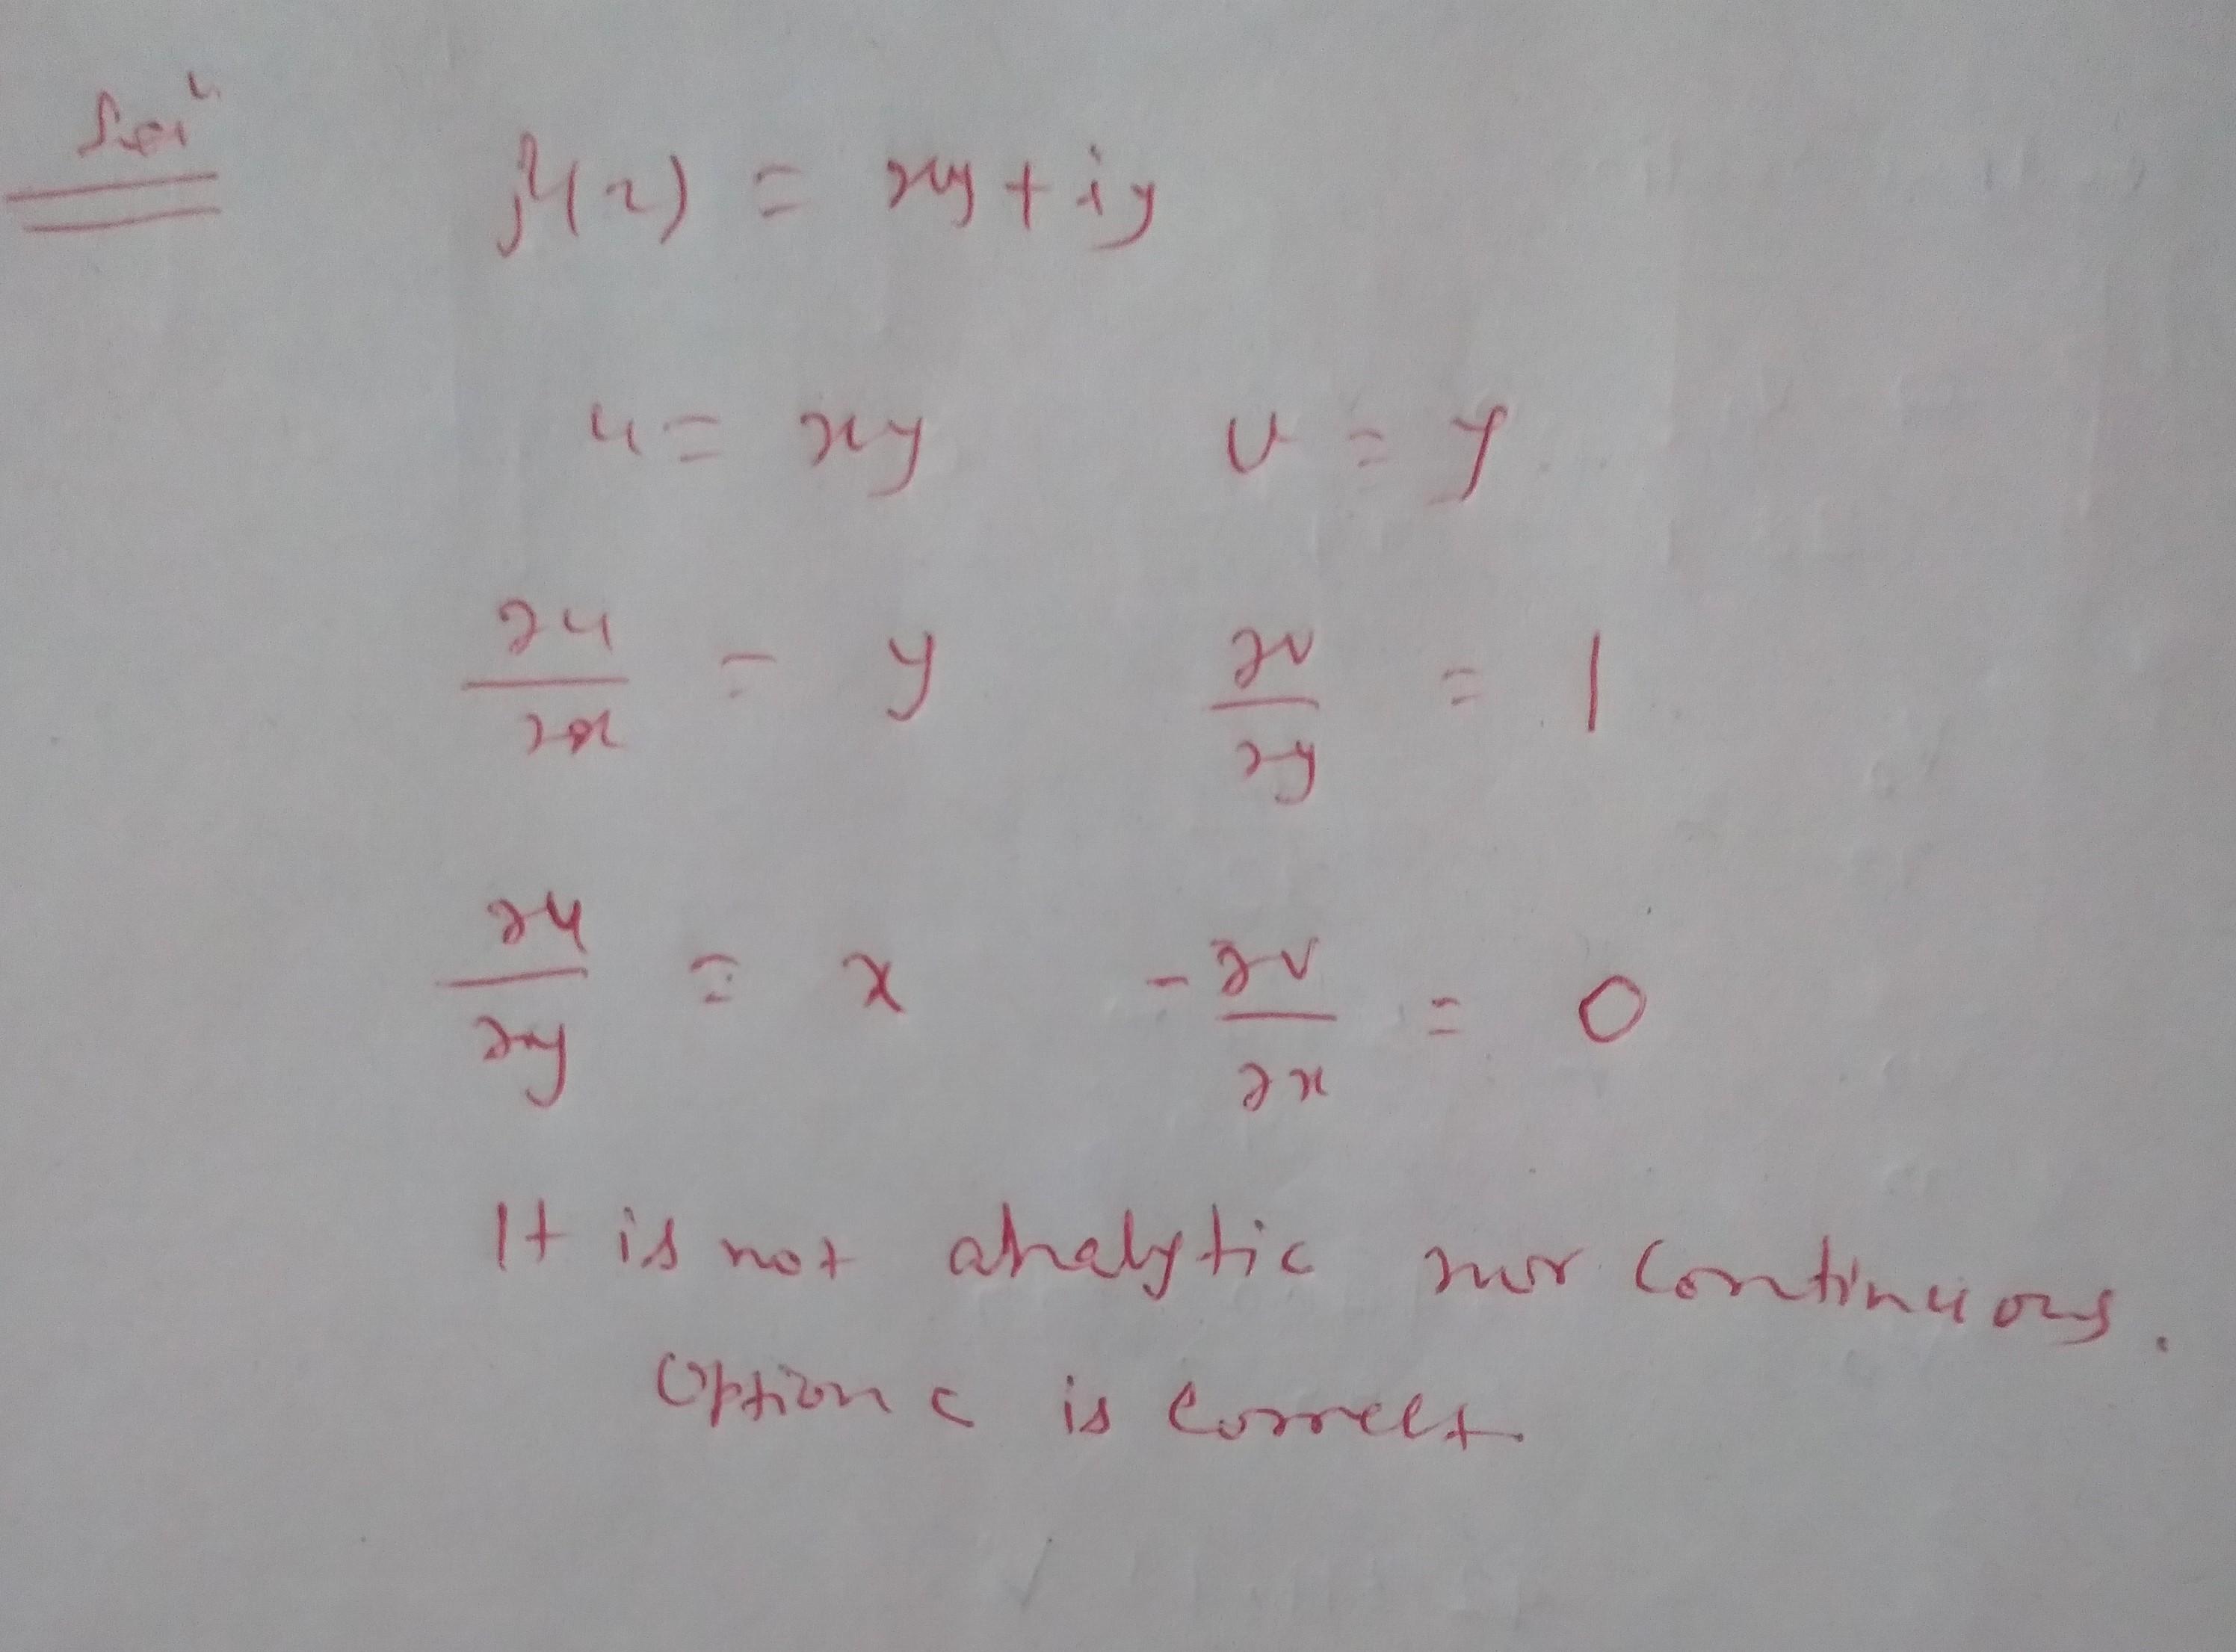 Sol^n
f(z) = xy + iy
u = xy v = y
∂u/∂x = y ∂v/∂y = 1
∂u/∂y = x -∂v/∂x = 0
It is not analytic nor continuous.
Option c is correct.